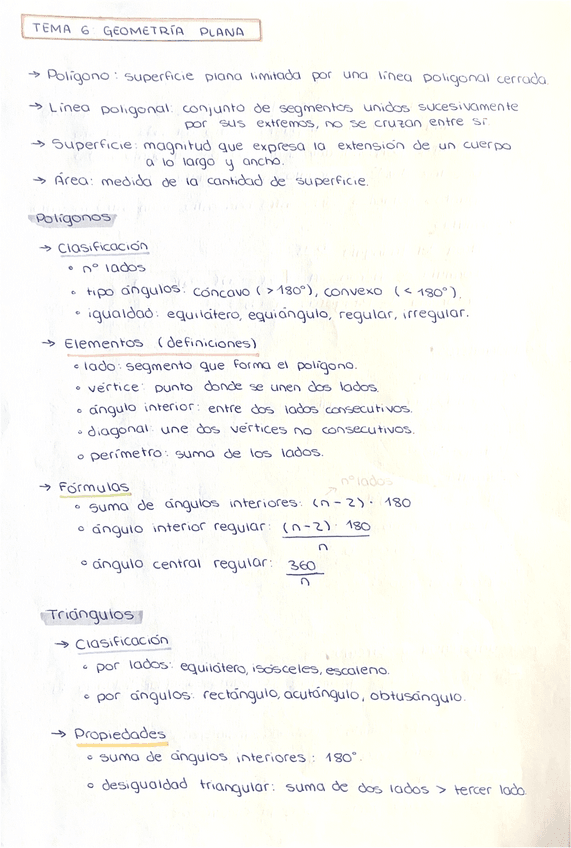 TEMA 6 GEOMETRÍA PLANA
→ Polígono: superficie plana limitada por una línea poligonal cerrada.
→ Línea poligonal: conjunto de segmentos unidos sucesivamente
por sus extremos, no se cruzan entre sí
→ Superficie: magnitud que expresa la extensión de un cuerpo
a lo largo y ancho.
→ Área: medida de la cantidad de superficie.
Polígonos
→ Clasificación
• nº lados
• tipo ángulos: cóncavo (> 180º), convexo (< 180º).
• igualdad: equilátero, equiángulo, regular, irregular.
→ Elementos (definiciones)
• lado: segmento que forma el polígono.
• vértice: punto donde se unen dos lados.
• ángulo interior: entre dos lados consecutivos.
• diagonal: une dos vértices no consecutivos.
• perímetro: suma de los lados.
nº lados
→ Fórmulas
• suma de ángulos interiores: (n-2) · 180
• ángulo interior regular: (n-2) · 180
n
• ángulo central regular: 360
n
Triángulos
→ Clasificación
• por lados: equilátero, isósceles, escaleno.
• por ángulos: rectángulo, acutángulo, obtusángulo.
→ Propiedades
• suma de ángulos interiores: 180º.
• desigualdad triangular: suma de dos lados > tercer lado.